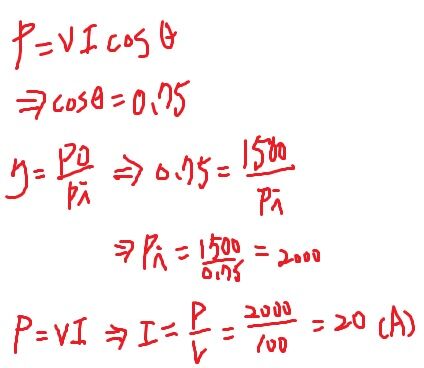 P=VIcosθ
⇒cosθ=0.75
η=Po/Pi ⇒ 0.75=1500/Pi
⇒Pi=1500/0.75=2000
P=VI ⇒ I=P/V=2000/100=20 (A)